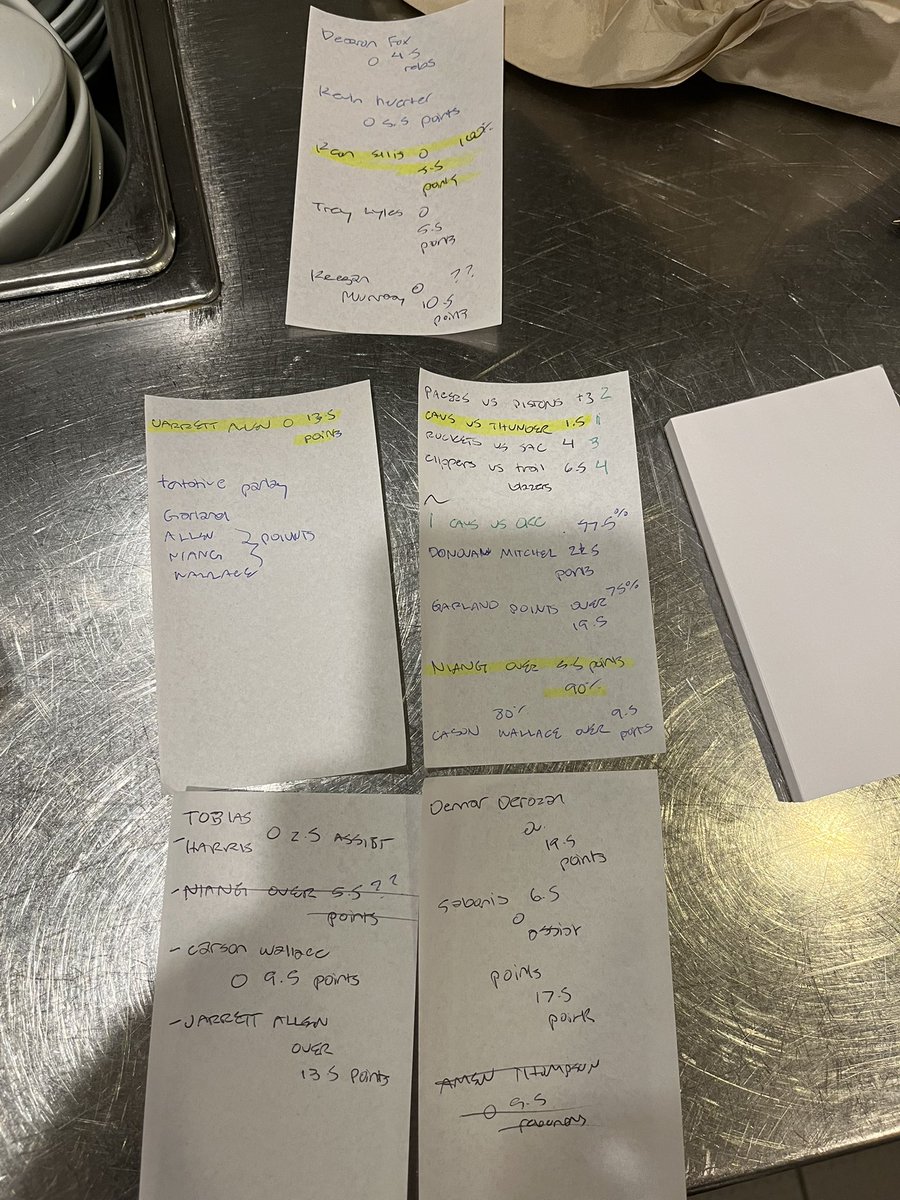 Deearon Fox
O 4.5
rebs
Kevin huerter
O 5.5 points
Kean ellis O 100%
5.5
points
Trey Lyles O
5.5
points
Keegan O ??
Murray 10.5
points
JARRETT ALLEN O 13.5
points
tentative parlay
Garland
ALLEN
NIANG } POINTS
WALLACE
PACERS VS PISTONS +3 2
CAVS VS THUNDER 1.5 1
ROCKETS VS SAC 4 3
Clippers vs trail 6.5 4
blazers
~
1 CAVS VS OKC
DONOVAN MITCHEL
points
75%
GARLAND POINTS OVER
19.5
NIANG OVER 5.5 points
90%
80% 9.5
CASON WALLACE OVER points
TOBIAS
- HARRIS O 2.5 ASSIST
- NIANG OVER 5.5 ??
points
- Carson wallace
O 9.5 points
- JARRETT ALLEN
OVER
13.5 points
Demar Derozan
19.5
points
Sabonis 6.5
O
assist
points
17.5
points
AMEN THOMPSON
O 9.5